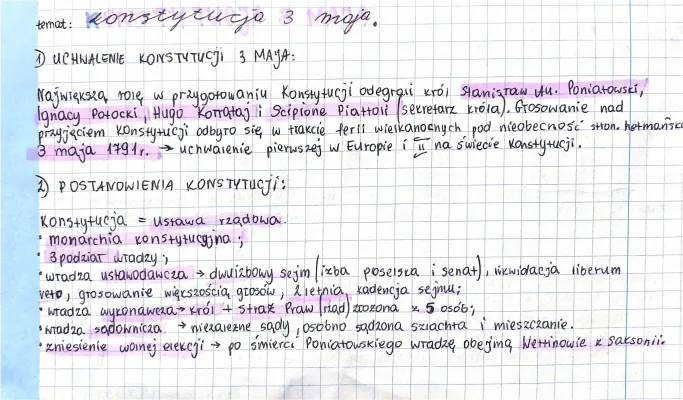 temat: Konstytucja 3 maja.
1) UCHWALENIE KONSTYTUCJI 3 MAJA:
Największą rolę w przygotowaniu Konstytucji odegrali król Stanisław Au. Poniatowski,
Ignacy Potocki, Hugo Kołłątaj i Scipione Piattoli (sekretarz króla). Głosowanie nad
przyjęciem konstytucji odbyło się w trakcie ferii wielkanocnych pod nieobecność stron. hetmańsk
3 maja 1791 r. → uchwalenie pierwszej w Europie i II na świecie Konstytucji.
2) POSTANOWIENIA KONSTYTUCJI:
Konstytucja = ustawa rządowa.
• monarchia konstytucyjna;
• 3podział władzy;
• władza ustawodawcza → dwuizbowy sejm (izba poselska i senat), likwidacja liberum
veto, głosowanie większością głosów, 2 letnia, kadencja sejmu;
• władza wykonawcza → król + Straż Praw (rząd) złożona z 5 osób;
• władza sądownicza → niezależne sądy, osobno sądzona szlachta i mieszczanie.
• zniesienie wolnej elekcji → po śmierci Poniatowskiego władzę obejmą Wettinowie z Saksonii.